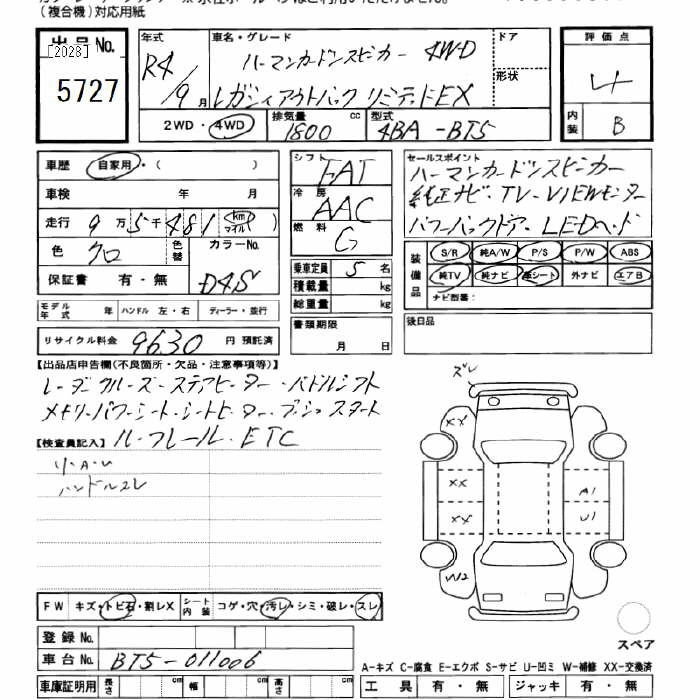 (複合機)対応用紙
出品No.
[2028]
5727
年式
R4/9月
車名・グレード
ハーマンカードンスピーカー 4WD
レガシィアウトバック リミテッドEX
ドア
形状
評価点
4
内装
B
2WD・4WD
排気量
1800
cc
型式
4BA-BT5
車歴
自家用・( )
車検 年 月
走行 9万5千481 (km マイル)
色
クロ
色替
カラーNo.
D4S
保証書 有・無
モデル年式 年 ハンドル 左・右 ディーラー・並行
リサイクル料金 9630 円 預託済
シフト
FAT
冷房
AAC
燃料
G
乗車定員 5 名
積載量 kg
総重量 kg
書類期限
月 日
セールスポイント
ハーマンカードンスピーカー
純正ナビ・TV・VIEWモニター
パワーバックドア・LEDヘッド
装備品
S/R 純A/W P/S P/W ABS
純TV 純ナビ 革シート 外ナビ エアB
ナビ型番:
後日品
【出品店申告欄(不良箇所・欠品・注意事項等)】
レーダークルーズ・ステアヒーター・パドルシフト
メモリーパワーシート・シートヒーター・プッシュスタート
ルーフレール・ETC
【検査員記入】
リ・A・U
ハンドルスレ
スレ
XX
XX
XX
A1
U1
W2
FW キズ・トビ石・割レX
シート内装 コゲ・穴・汚レ・シミ・破レ・スレ
スペア
登録No.
車台No. BT5-011006
A-キズ C-腐食 E-エクボ S-サビ U-凹ミ W-補修 XX-交換済
車庫証明用 長さ cm 幅 cm 高さ cm
工具 有・無 ジャッキ 有・無